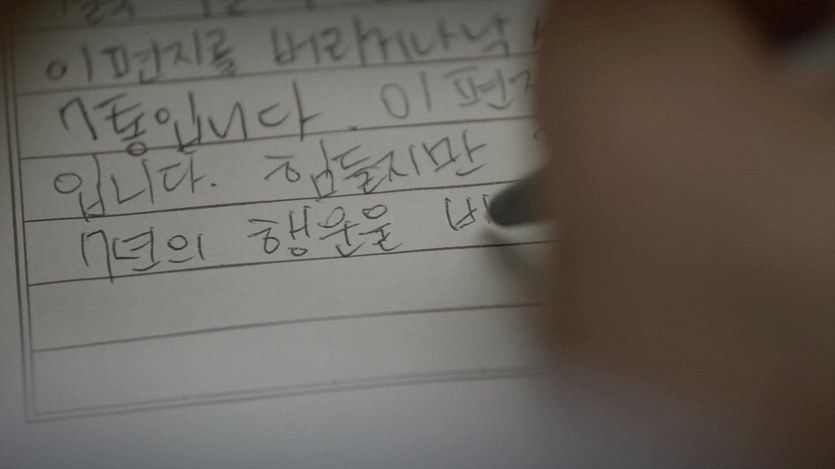 이 편지를 버리거나 낙
7통입니다. 이 편지
입니다. 힘들지만
7년의 행운을 빌